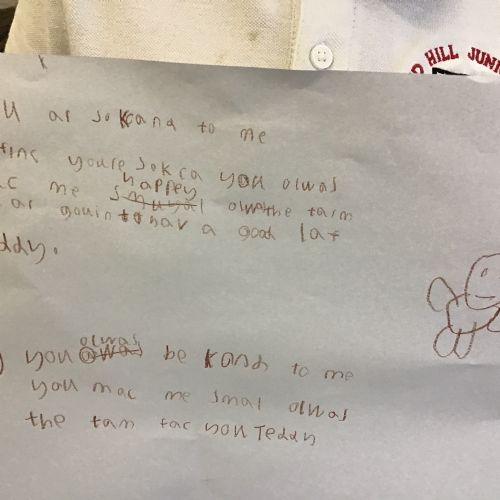 HILL JUNI
u ar sokcand to me
finc youre sokca you olwas
ac me happey olwas the tarm
ar gouin to hav a good laf
ddy.
you olwas be kand to me
you mac me smal olwas
the tam fac you Teddy